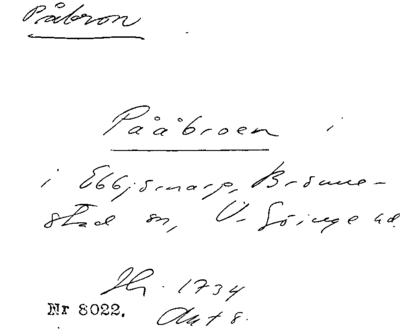 Påbron
Pååbroen i
i Ebbjörnarp, Brönne-
stad sn, V. Göinge hd.
Hs. 1734
Nr 8022. Akt 8.